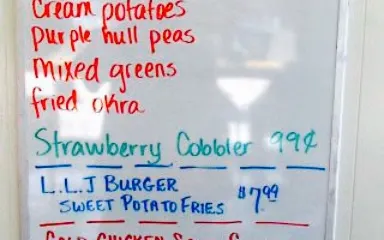 Cream potatoes
purple hull peas
mixed greens
fried okra
Strawberry Cobbler 99¢
L.L.J BURGER $7.99
SWEET POTATO FRIES
CHICKEN